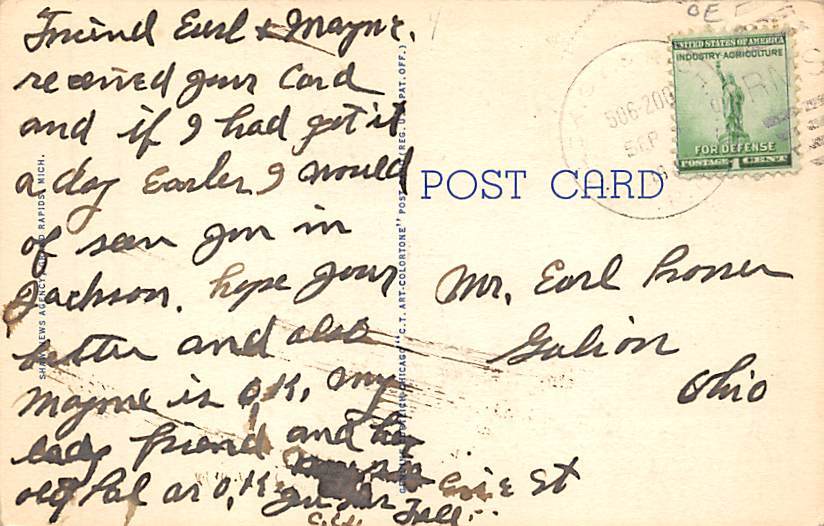 Friend Earl & Mayme.
received your Card
and if I had got it
a day Earler I would
of seen you in
Jackson. hope your
better and also
Mayme is O.K. My
lady friend and her
old Pal ar O.K.
St
POST CARD
Mr. Earl Prosser
Galion
Ohio
UNITED STATES OF AMERICA
INDUSTRY-AGRICULTURE
FOR DEFENSE
POSTAGE 1 CENT
SEP
RAPIDS, MICH.
CHICAGO "C.T. ART-COLORTONE" POST
(REG. U.S. PAT. OFF.)